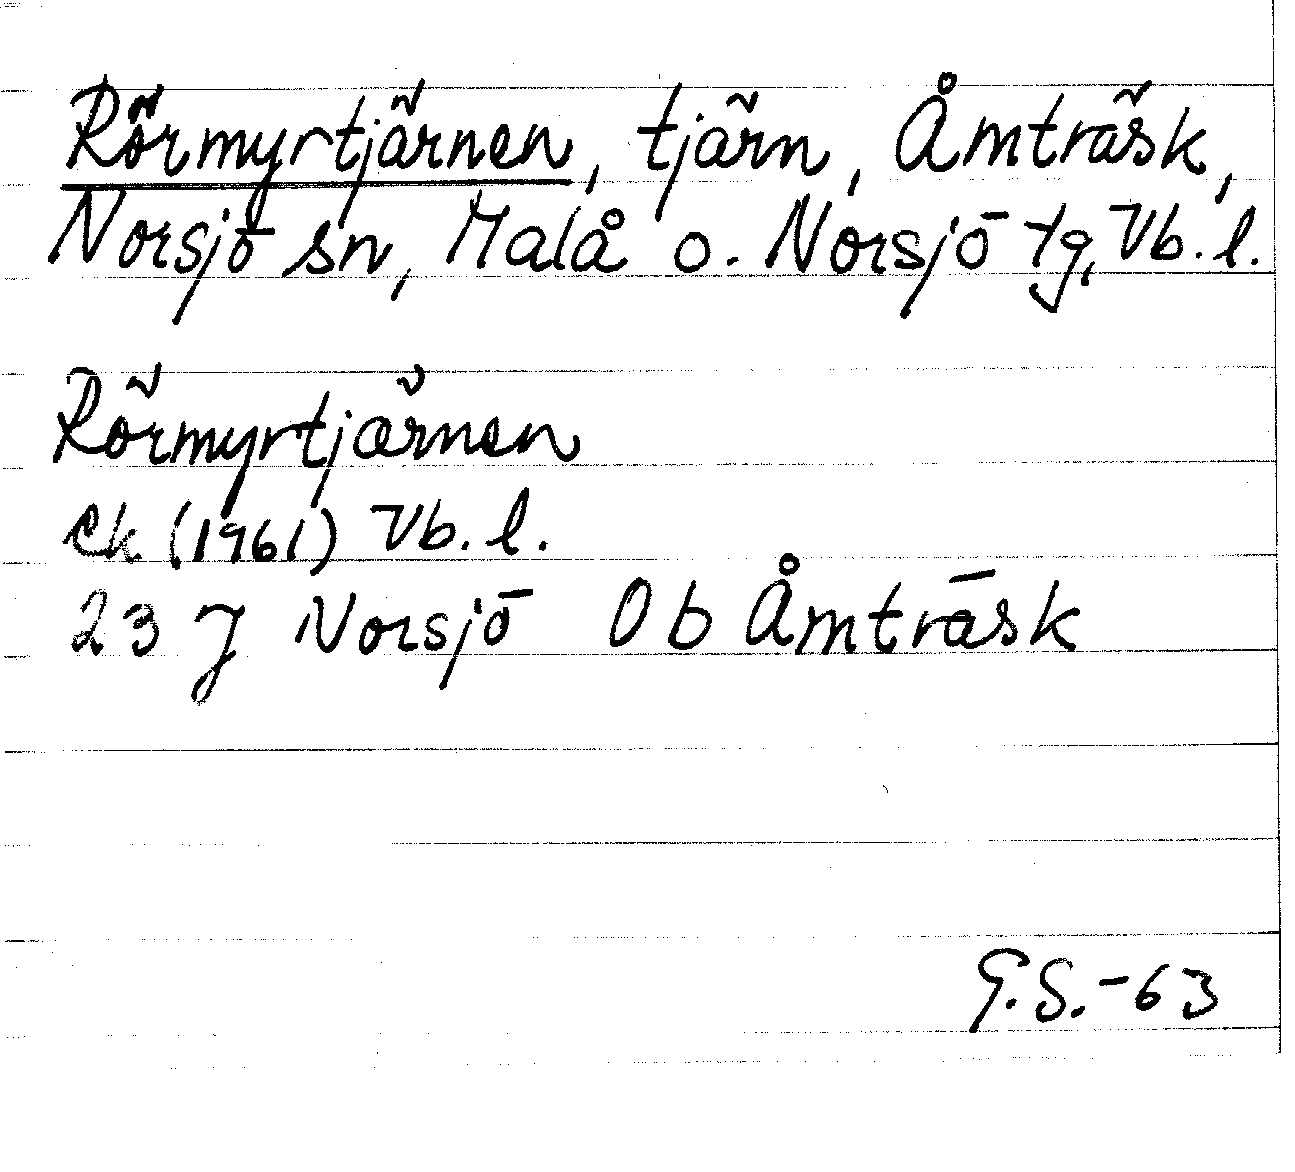 Rörmyrtjärnen, tjärn, Åmträsk,
Norsjö sn, Malå o. Norsjö tg, Vb. l.
Rörmyrtjärnen
ek (1961) Vb. l.
23 J Norsjö 0b Åmträsk
G.S.-63